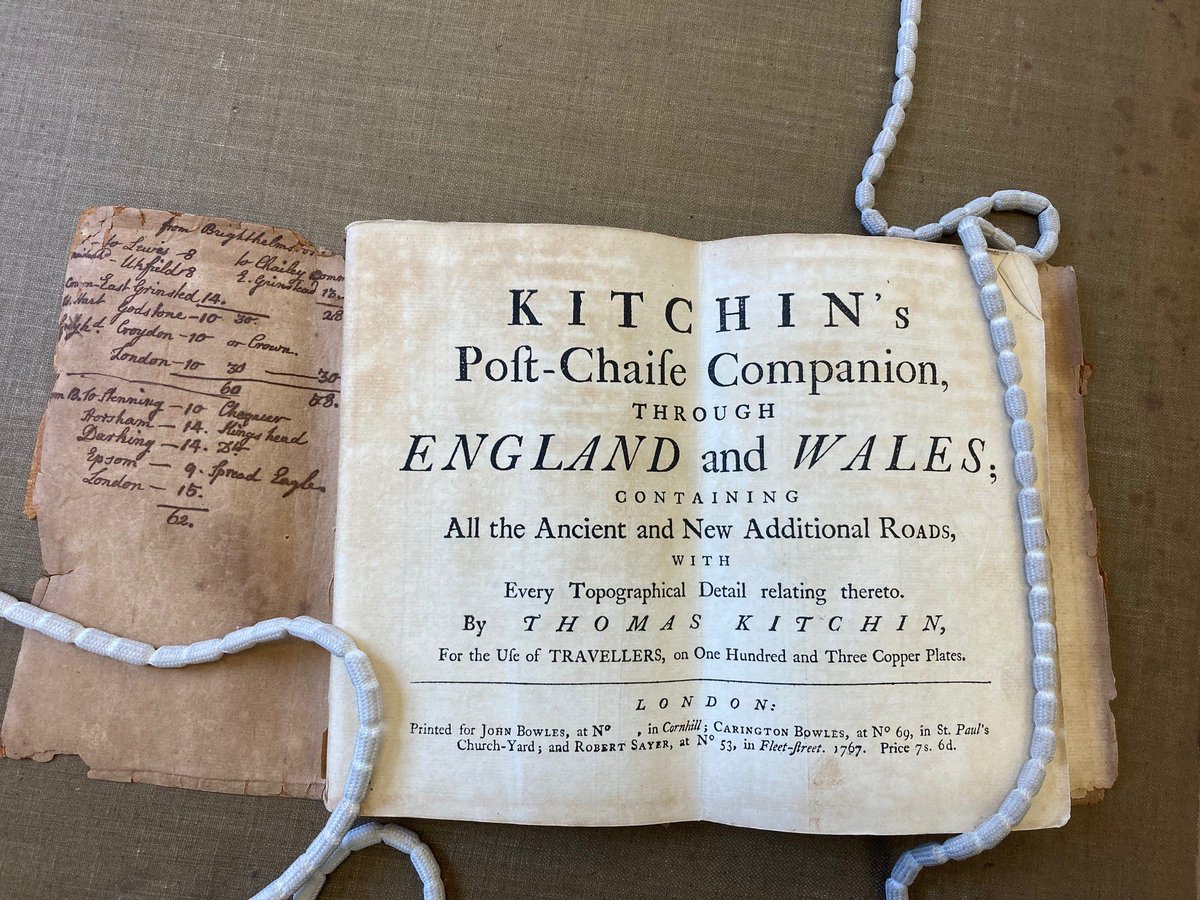 from Brighthelms
to Lewis - 8 to Chailey Comm
Uckfield 8 E. Grinstead 13
East Grinsted 14. 28
Hart Godstone - 10 30.
Croydon - 10 or Crown.
London - 10 30 30
60 58.
B. to Stenning - 10 Chequer
Horsham - 14. Kings head
Darking - 14. Do
Epsom - 9. Spread Eagle
London - 15.
62.
KITCHIN's
Poſt-Chaiſe Companion,
THROUGH
ENGLAND and WALES;
CONTAINING
All the Ancient and New Additional ROADS,
WITH
Every Topographical Detail relating thereto.
By THOMAS KITCHIN,
For the Uſe of TRAVELLERS, on One Hundred and Three Copper Plates.
LONDON:
Printed for JOHN BOWLES, at Nº , in Cornhill; CARINGTON BOWLES, at Nº 69, in St. Paul's
Church-Yard; and ROBERT SAYER, at Nº 53, in Fleet-ſtreet. 1767. Price 7s. 6d.